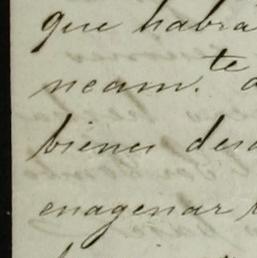 que habra
neam.te
bienes des
enagenar